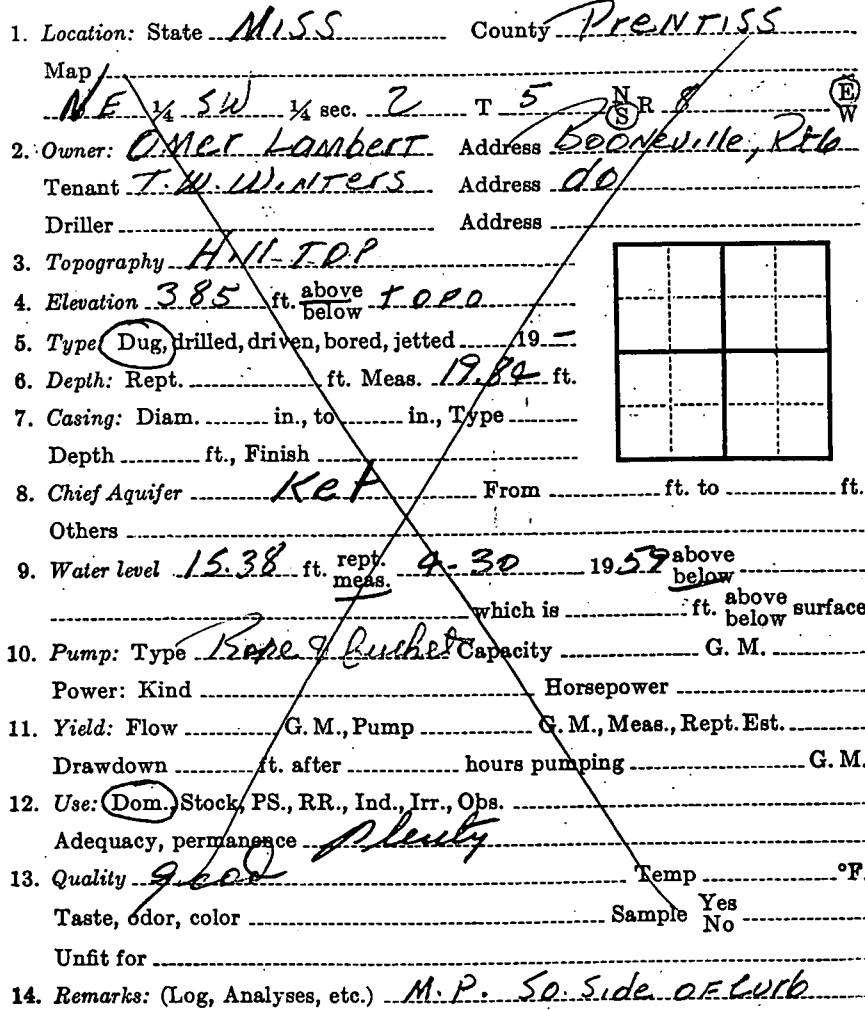 1. Location: State MISS County PRENTISS
Map
NE ¼ SW ¼ sec. 2 T 5 N S R 8 E W
2. Owner: OMER LAMBERT Address BOONEVILLE,
Tenant T.W. WINTERS Address do
Driller Address
3. Topography Hill TOP
4. Elevation 385 ft. above below TOPO
5. Type: Dug, drilled, driven, bored, jetted 19 –
6. Depth: Rept. ft. Meas. ft.
7. Casing: Diam. in., to in., Type
Depth ft., Finish
8. Chief Aquifer From ft. to ft.
Others
9. Water level 15.38 ft. rept. meas. 9-30 1959 above below
which is ft. above below surface
10. Pump: Type Rope & Bucket Capacity G. M.
Power: Kind Horsepower
11. Yield: Flow G. M., Pump G. M., Meas., Rept. Est.
Drawdown ft. after hours pumping G. M.
12. Use: Dom., Stock, PS., RR., Ind., Irr., Obs.
Adequacy, permanence plenty
13. Quality good Temp °F.
Taste, odor, color Sample Yes No
Unfit for
14. Remarks: (Log, Analyses, etc.) M.P. So. Side OF Curb